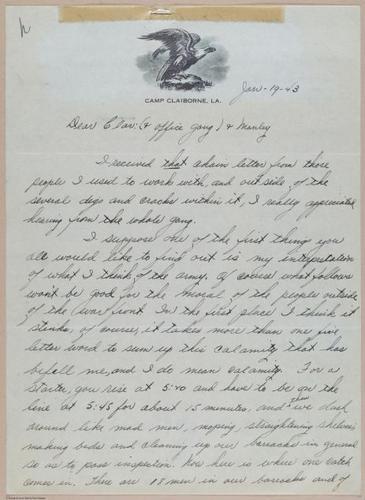 h
CAMP CLAIBORNE, LA.
Jan-19-43
Dear Clar: (& office gang) & Manley
I received that chain letter from those
people I used to work with, and outside of the
several digs and cracks within it, I really appreciated
hearing from the whole gang.
I suppose one of the first things you
all would like to find out is my interpretation
of what I think of the army. Of course what follows
won't be good for the moral of the people outside
of the (war) front. In the first place I think it
stinks, of course, it takes more than one five
letter word to sum up this calamity that has
befell me, and I do mean calamity. For a
starter, you rise at 5:40 and have to be on the
line at 5:45 for about 15 minutes, and then we dash
around like mad men, moping, straightening shelves,
making beds and cleaning up our barracks in general
so as to pass inspection. Now here is where one catch
comes in. There are 18 men in our barracks and of